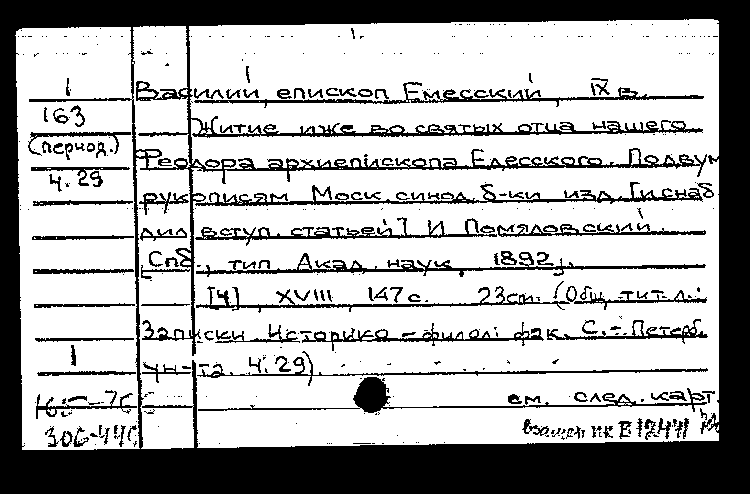 1
Василий, епископ Емесский, IX в.
163
Житие иже во святых отца нашего
(период.)
Феодора архиепископа Едесского. По двум
ч. 29
рукописям Моск. синод. б-ки изд. [и снаб
дил вступ. статьей] И Помяловский.
[Спб., тип. Акад. наук, 1892].
[4], XVIII, 147 с. 23см. (Общ. тит. л.:
Записки Историко-филол. фак. С.-Петерб.
1
ун-та. Ч. 29).
см. след. карт.
306-440
взамен пк В 12441